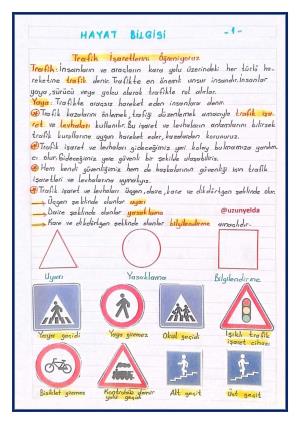 HAYAT BİLGİSİ
-1-
Trafik İşaretlerini Öğreniyoruz
Trafik: İnsanların ve araçların kara yolu üzerindeki her türlü ha-
reketine trafik denir. Trafikte en önemli unsur insandır. İnsanlar
yaya, sürücü veya yolcu olarak trafikte rol alırlar.
Yaya: Trafikte araçsız hareket eden insanlara denir.
Trafik kazalarını önlemek, trafiği düzenlemek amacıyla trafik işa-
ret ve levhaları kullanılır. Bu işaret ve levhaların anlamlarını bilirsek
trafik kurallarına uygun hareket eder, kazalardan korunuruz.
Trafik işaret ve levhaları gideceğimiz yeri kolay bulmamıza yardım-
cı olur. Gideceğimiz yere güvenli bir şekilde ulaşabiliriz.
Hem kendi güvenliğimiz hem de başkalarının güvenliği için trafik
işaretleri ve levhalarına uymalıyız.
Trafik işaret ve levhaları üçgen, daire, kare ve dikdörtgen şeklinde olur.
Üçgen şeklinde olanlar uyarı
Daire şeklinde olanlar yasaklama
@uzunyelda
Kare ve dikdörtgen şeklinde olanlar bilgilendirme amaçlıdır.
Uyarı Yasaklama Bilgilendirme
Yaya geçidi Yaya giremez Okul geçidi Işıklı trafik
işaret cihazı
Bisiklet giremez Kontrolsüz demir
yolu geçidi Alt geçit Üst geçit